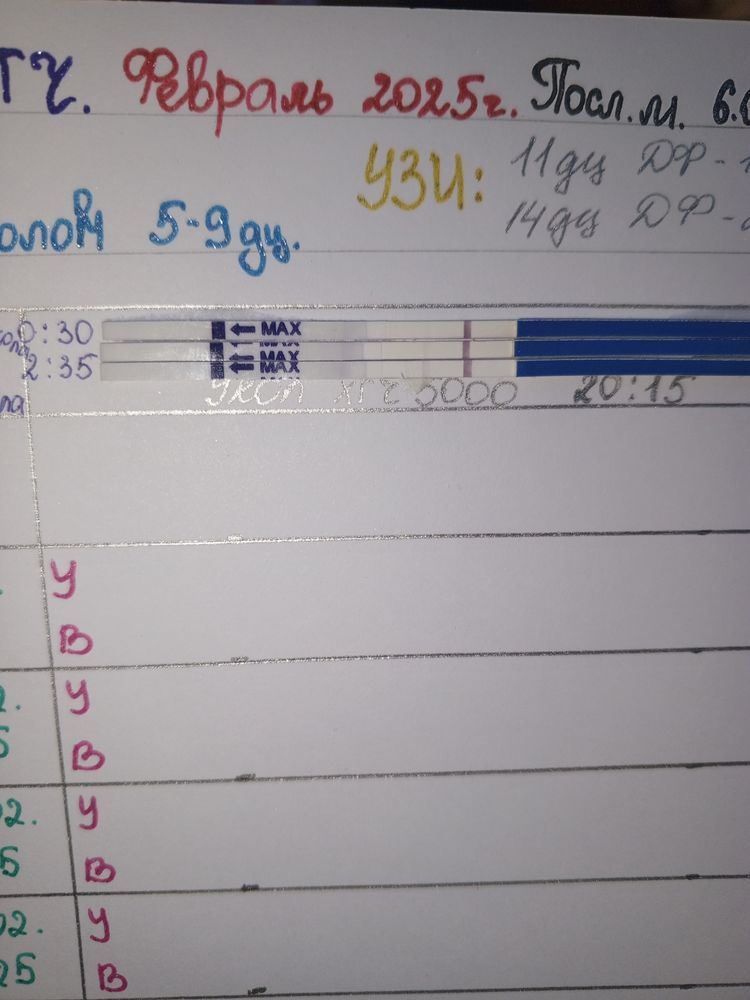 ТЧ. Февраль 2025г. Посл.м. 6.0
УЗИ: 11дц ДФ-
14дц ДФ-
олом 5-9дц.
0:30 MAX
2:35 MAX
MAX
Укол ХГЧ 5000 20:15
ла
У
В
2. У
5 В
02. У
5 В
02. У
25 В